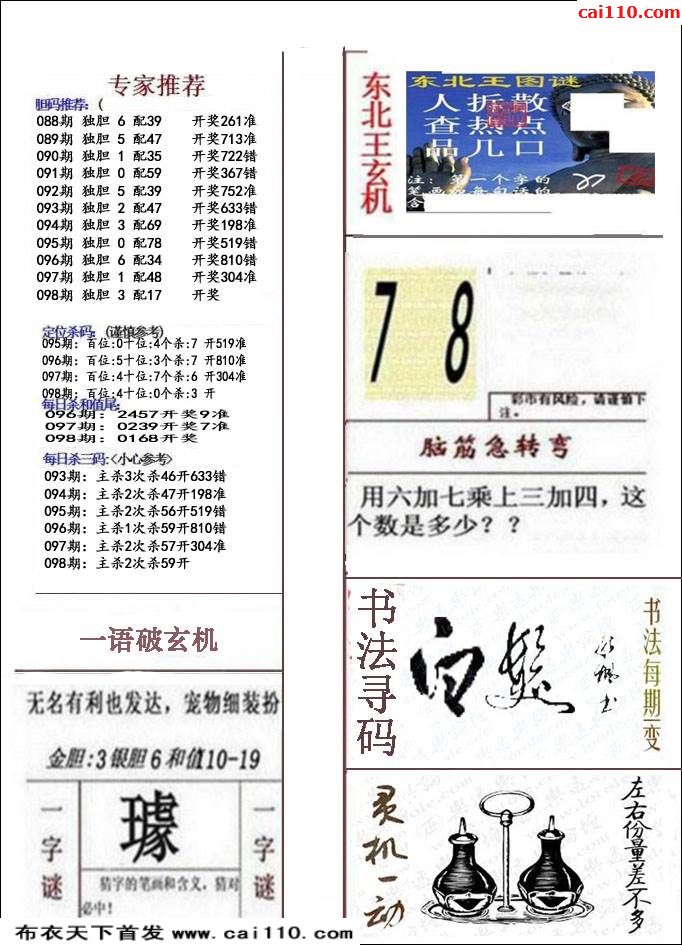 cai110.com
专家推荐
胆码推荐：（
088期 独胆 6 配39 开奖261准
089期 独胆 5 配47 开奖713准
090期 独胆 1 配35 开奖722错
091期 独胆 0 配59 开奖367错
092期 独胆 5 配39 开奖752准
093期 独胆 2 配47 开奖633错
094期 独胆 3 配69 开奖198准
095期 独胆 0 配78 开奖519错
096期 独胆 6 配34 开奖810错
097期 独胆 1 配48 开奖304准
098期 独胆 3 配17 开奖
定位杀码：（谨慎参考）
095期：百位:0十位:4个杀:7 开519准
096期：百位:5十位:3个杀:7 开810准
097期：百位:4十位:7个杀:6 开304准
098期：百位:4十位:0个杀:3 开
每日杀和值尾：
096期：2457开奖9准
097期：0239开奖7准
098期：0168开奖
每日杀三码：<小心参考>
093期：主杀3次杀46开633错
094期：主杀2次杀47开198准
095期：主杀2次杀56开519错
096期：主杀1次杀59开810错
097期：主杀2次杀57开304准
098期：主杀2次杀59开
一语破玄机
无名有利也发达，宠物细装扮
金胆:3银胆6和值10-19
一字谜
璩
猜字的笔画和含义，猜对
必中！
一字谜
布衣天下首发 www.cai110.com
东北王玄机
东北王图谜
人 折 散
查 热 点
品 几 口
注：第一个字的
笔画 每句话的
含
7 8
彩市有风险，请谨慎下
注。
脑筋急转弯
用六加七乘上三加四，这
个数是多少？？
书法寻码
白 发
书法每期一变
灵机一动
左右份量差不多